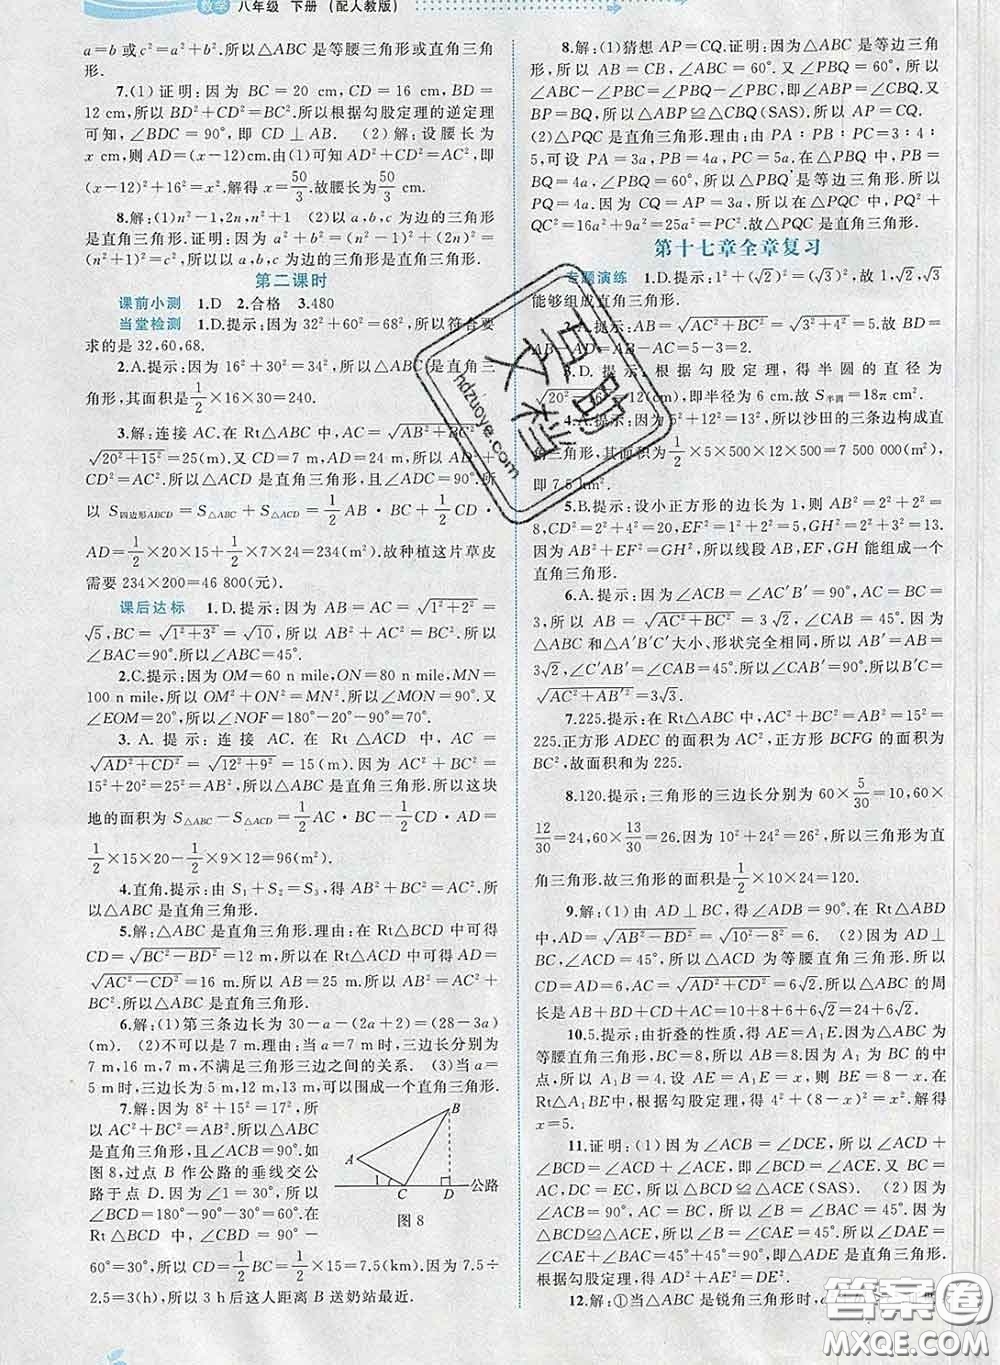 数学 八年级 下册 (配人教版)
a=b或c²=a²+b².所以△ABC是等腰三角形或直角三角
形.
7.(1)证明:因为 BC=20 cm,CD=16 cm,BD=
12 cm,所以 BD²+CD²=BC².所以根据勾股定理的逆定理
可知,∠BDC=90°,即 CD⊥AB. (2)解:设腰长为
x cm,则 AD=(x-12)cm.由(1)可知 AD²+CD²=AC²,即
(x-12)²+16²=x².解得 x=50/3.故腰长为50/3 cm.
8.解:(1)n²-1,2n,n²+1 (2)以a,b,c为边的三角形
是直角三角形.证明:因为 a²+b²=(n²-1)²+(2n)²=
(n²+1)²=c²,所以以a,b,c为边的三角形是直角三角形.
第二课时
课前小测 1.D 2.合格 3.480
当堂检测 1.D.提示:因为 32²+60²=68²,所以符合要
求的是 32,60,68.
2.A.提示:因为 16²+30²=34²,所以△ABC是直角三
角形,其面积是1/2×16×30=240.
3.解:连接 AC.在 Rt△ABC 中,AC=√(AB²+BC²)=
√(20²+15²)=25(m).又 CD=7 m,AD=24 m,所以 AD²+
CD²=AC².所以△ACD 是直角三角形,且∠ADC=90°.所
以 S四边形ABCD=S△ABC+S△ACD=1/2AB·BC+1/2CD·
AD=1/2×20×15+1/2×7×24=234(m²).故种植这片草皮
需要 234×200=46 800(元).
课后达标 1.D.提示:因为 AB=AC=√(1²+2²)=
√5,BC=√(1²+3²)=√10,所以 AB²+AC²=BC².所以
∠BAC=90°.所以∠ABC=45°.
2.C.提示:因为 OM=60 n mile,ON=80 n mile,MN=
100 n mile,所以 OM²+ON²=MN².所以∠MON=90°.又
∠EOM=20°,所以∠NOF=180°-20°-90°=70°.
3. A. 提示: 连接 AC. 在 Rt △ACD 中, AC=
√(AD²+CD²)=√(12²+9²)=15(m).因为 AB²+BC²=
15²+20²=25²=AB²,所以△ABC 是直角三角形.所以这块
地的面积为 S△ABC-S△ACD=1/2AC·BC-1/2CD·AD=
1/2×15×20-1/2×9×12=96(m²).
4.直角.提示:由 S₁+S₂=S₃,得 AB²+BC²=AC².所以
△ABC是直角三角形.
5.解:△ABC 是直角三角形.理由:在 Rt△BCD 中可得
CD=√(BC²-BD²)=12 m,所以在 Rt△ACD 中可得 AD=
√(AC²-CD²)=16 m.所以 AB=25 m.所以 AC²+BC²=
AB².所以△ABC是直角三角形.
6.解:(1)第三条边长为 30-a-(2a+2)=(28-3a)
(m). (2)不可以是 7 m.理由:当 a=7 m 时,三边长分别为
7 m,16 m,7 m,不满足三角形三边之间的关系. (3)当 a=
5 m 时,三边长分别为 5 m,12 m,13 m,可以围成一个直角三角形.
7.解:因为 8²+15²=17²,所
以 AC²+BC²=AB².所以△ABC
是直角三角形,且∠ACB=90°.如
图 8,过点 B 作公路的垂线交公
路于点 D.因为∠1=30°,所以
∠BCD=180°-90°-30°=60°.在
Rt△BCD 中,∠CBD=90°-
60°=30°,所以 CD=1/2BC=1/2×15=7.5(km).因为 7.5÷
2.5=3(h),所以 3 h 后这人距离 B 送奶站最近.
A B C 1 D 公路
图 8
8.解:(1)猜想 AP=CQ.证明:因为△ABC 是等边三角
形,所以 AB=CB,∠ABC=60°.又∠PBQ=60°,所以
∠ABC-∠PBC=∠PBQ-∠PBC,即∠ABP=∠CBQ.又
BP=BQ,所以△ABP≌△CBQ(SAS).所以 AP=CQ.
(2)△PQC 是直角三角形.理由:由 PA∶PB∶PC=3∶4∶
5,可设 PA=3a,PB=4a,PC=5a.在△PBQ 中,PB=
BQ=4a,∠PBQ=60°,所以△PBQ 是等边三角形.所以
PQ=4a.因为 CQ=AP=3a,所以在△PQC 中,PQ²+
QC²=16a²+9a²=25a²=PC².故△PQC是直角三角形.
第十七章全章复习
专题演练 1.D.提示:1²+(√2)²=(√3)²,故 1,√2,√3
能够组成直角三角形.
2.A.提示:AB=√(AC²+BC²)=√(3²+4²)=5.故 BD=
AB-AD=AB-AC=5-3=2.
3.D.提示:根据勾股定理,得半圆的直径为
=12(cm),即半径为 6 cm.故 S半圆=18π cm².
4.A.提示:5²+12²=13²,所以沙田的三条边构成直
角三角形,其面积为1/2×5×500×12×500=7 500 000(m²),
即 7.5 km².
5.B.提示:设小正方形的边长为 1,则 AB²=2²+2²=
8,CD²=2²+4²=20,EF²=1²+2²=5,GH²=2²+3²=13.
因为 AB²+EF²=GH²,所以线段 AB,EF,GH 能组成一个
直角三角形.
6.A.提示:因为∠ACB=∠AC′B′=90°,AC=BC=3,
所以 AB=√(AC²+BC²)=3√2,∠CAB=45°.因为
△ABC 和△A′B′C′大小、形状完全相同,所以 AB′=AB=
3√2,∠C′AB′=∠CAB=45°.所以∠CAB′=90°.所以 B′C=
√(AC²+AB′²)=3√3.
7.225.提示:在 Rt△ABC 中,AC²+BC²=AB²=15²=
225.正方形 ADEC 的面积为 AC²,正方形 BCFG 的面积为
BC²,故面积和为 225.
8.120.提示:三角形的三边长分别为 60×5/30=10,60×
12/30=24,60×13/30=26.因为 10²+24²=26²,所以三角形为直
角三角形.故三角形的面积是1/2×10×24=120.
9.解:(1)由 AD⊥BC,得∠ADB=90°.在 Rt△ABD
中,AD=√(AB²-BD²)=√(10²-8²)=6. (2)因为 AD⊥
BC,∠ACD=45°,所以△ACD 为等腰直角三角形.所以
CD=AD=6,AC=√(AD²+CD²)=6√2.故△ABC 的周
长是 AB+BD+CD+AC=10+8+6+6√2=24+6√2.
10.5.提示:由折叠的性质,得 AE=A₁E.因为△ABC 为
等腰直角三角形,BC=8,所以 AB=8.因为 A₁ 为 BC 的中
点,所以 A₁B=4.设 AE=A₁E=x,则 BE=8-x.在
Rt△A₁BE中,根据勾股定理,得 4²+(8-x)²=x².解得
x=5.
11.证明:(1)因为∠ACB=∠DCE,所以∠ACD+
∠BCD=∠ACD+∠ACE,即∠BCD=∠ACE.因为 BC=
AC,DC=EC,所以△BCD≌△ACE(SAS). (2)因为
△ACB 是等腰直角三角形,所以∠B=∠BAC=45°.因为
△BCD≌△ACE,所以∠B=∠CAE=45°.所以∠DAE=
∠CAE+∠BAC=45°+45°=90°.所以△ADE 是直角三角形.
根据勾股定理,得 AD²+AE²=DE².
12.解:①当△ABC 是锐角三角形时,
百助文档
hdzuoye.com
答案圈
MXQE.COM